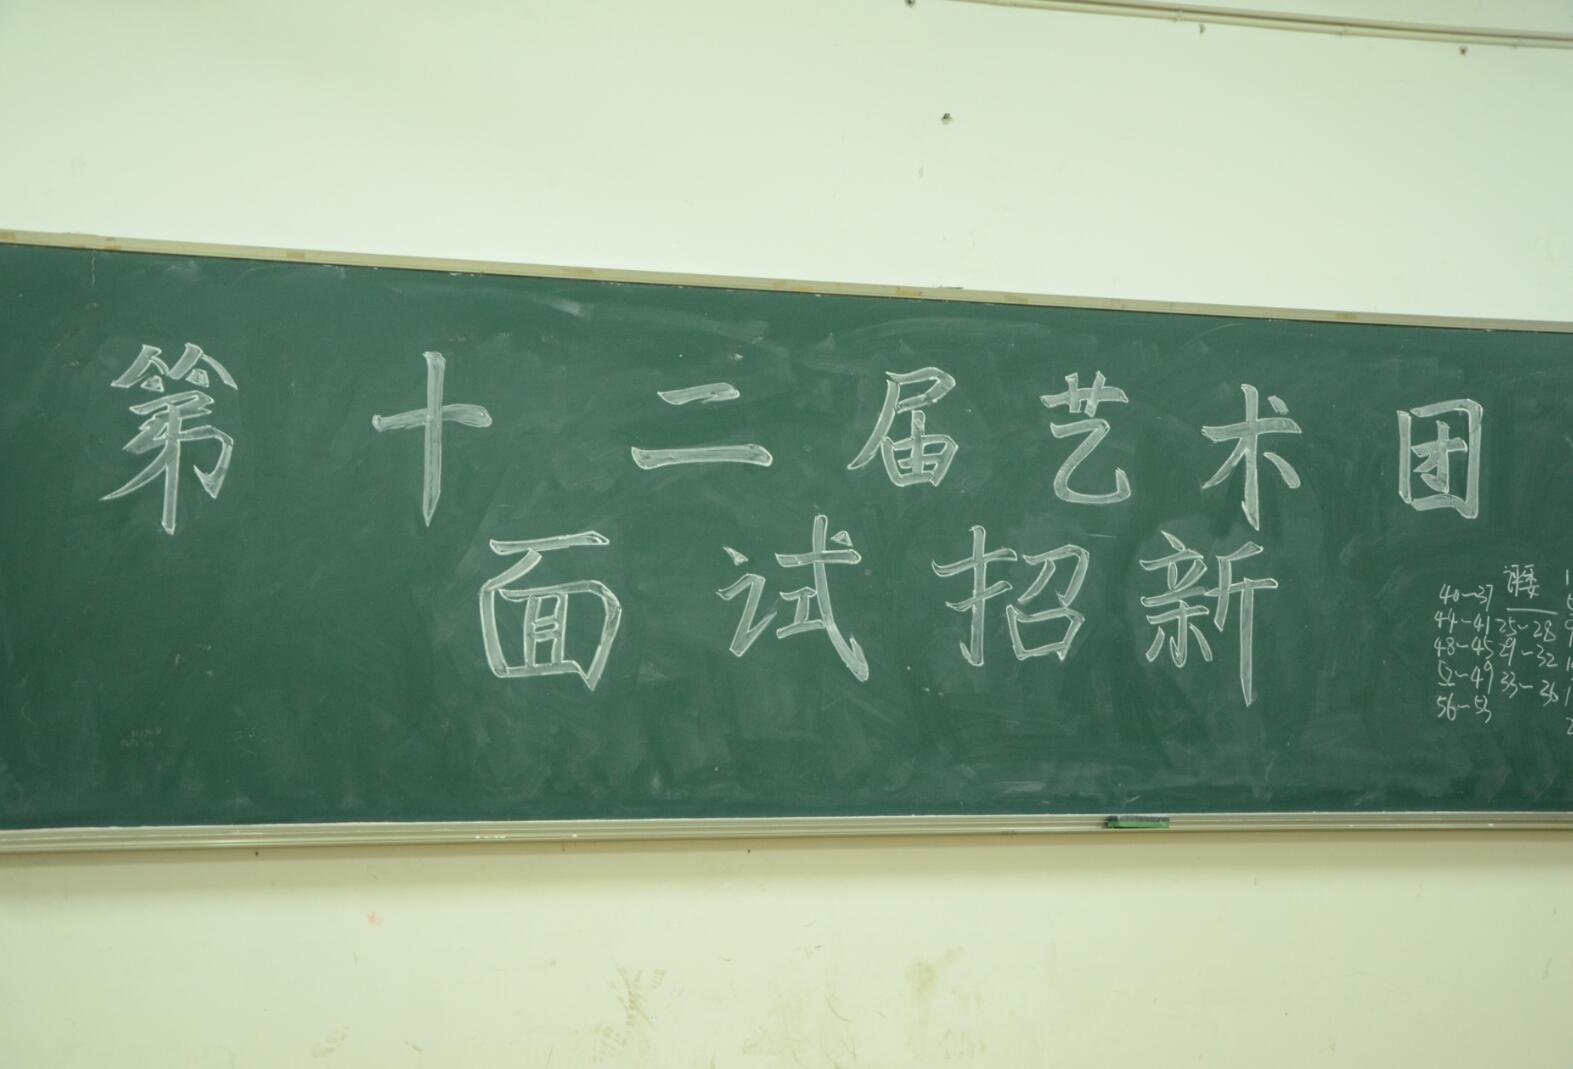 第十二届艺术团
面试招新
评委
40~37
44~41 25~28
48~45 29~32
52~49 33~36
56~53